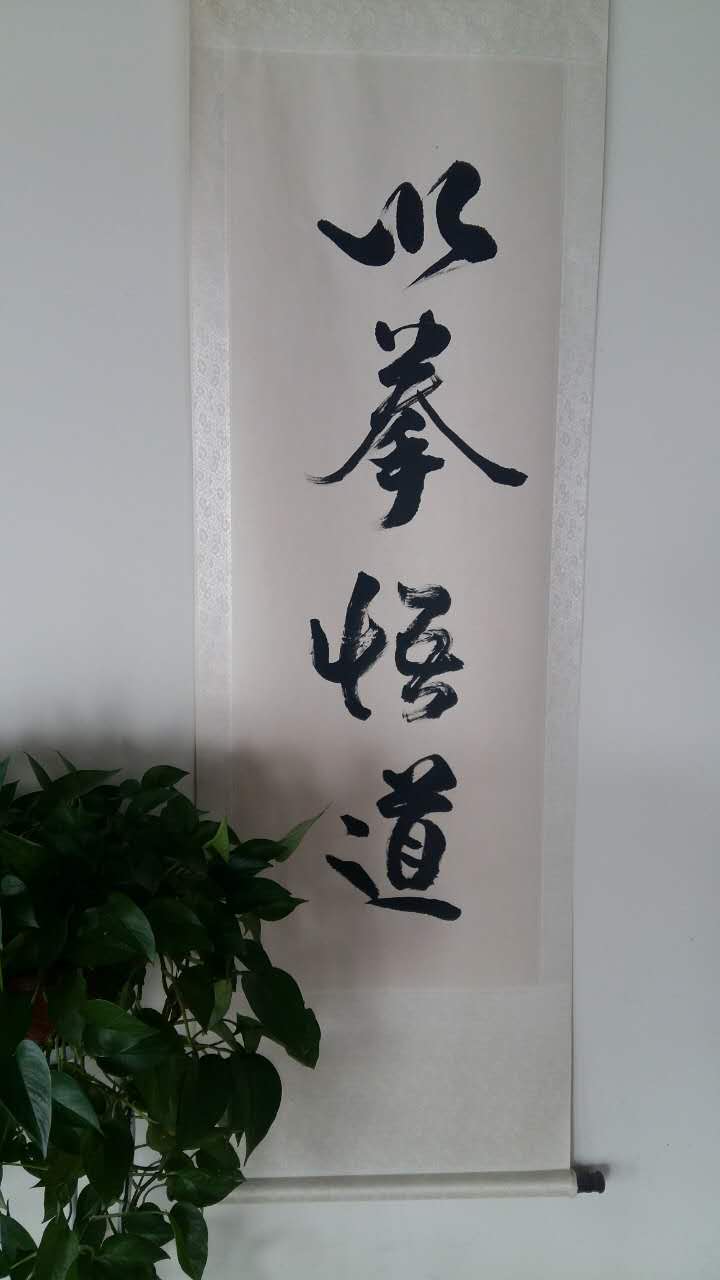 以拳悟道